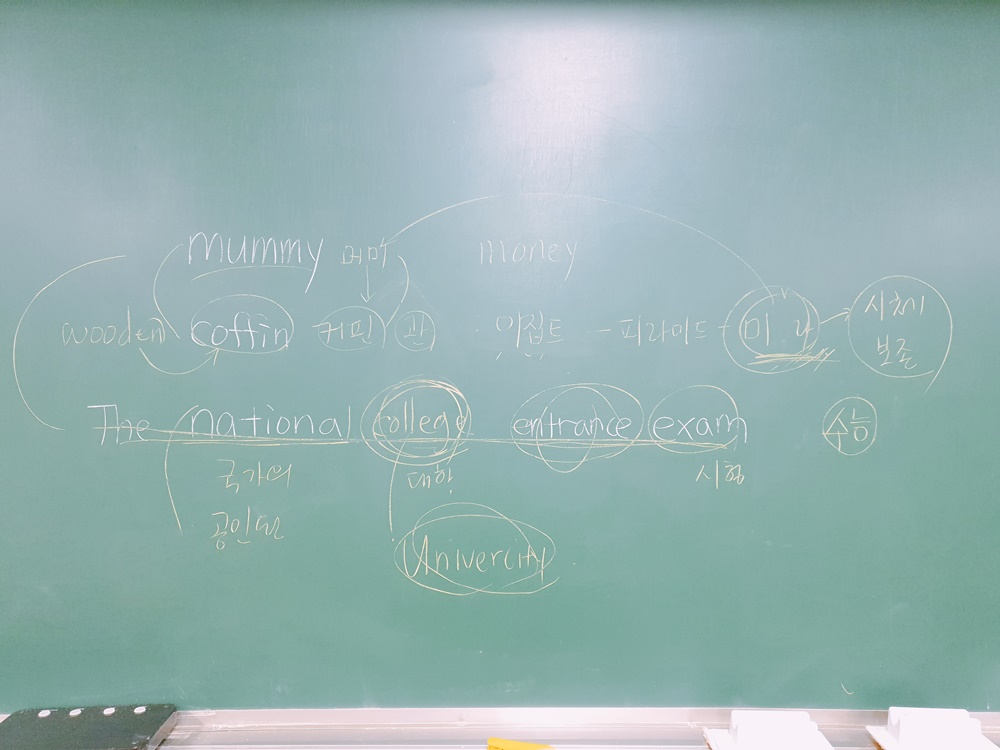 mummy 머미 money
wooden coffin 커핀 관 이집트 - 피라미드 - 미라 시체 보존
The national college entrance exam 수능
국가의 대학 시험
공인된
Univercity